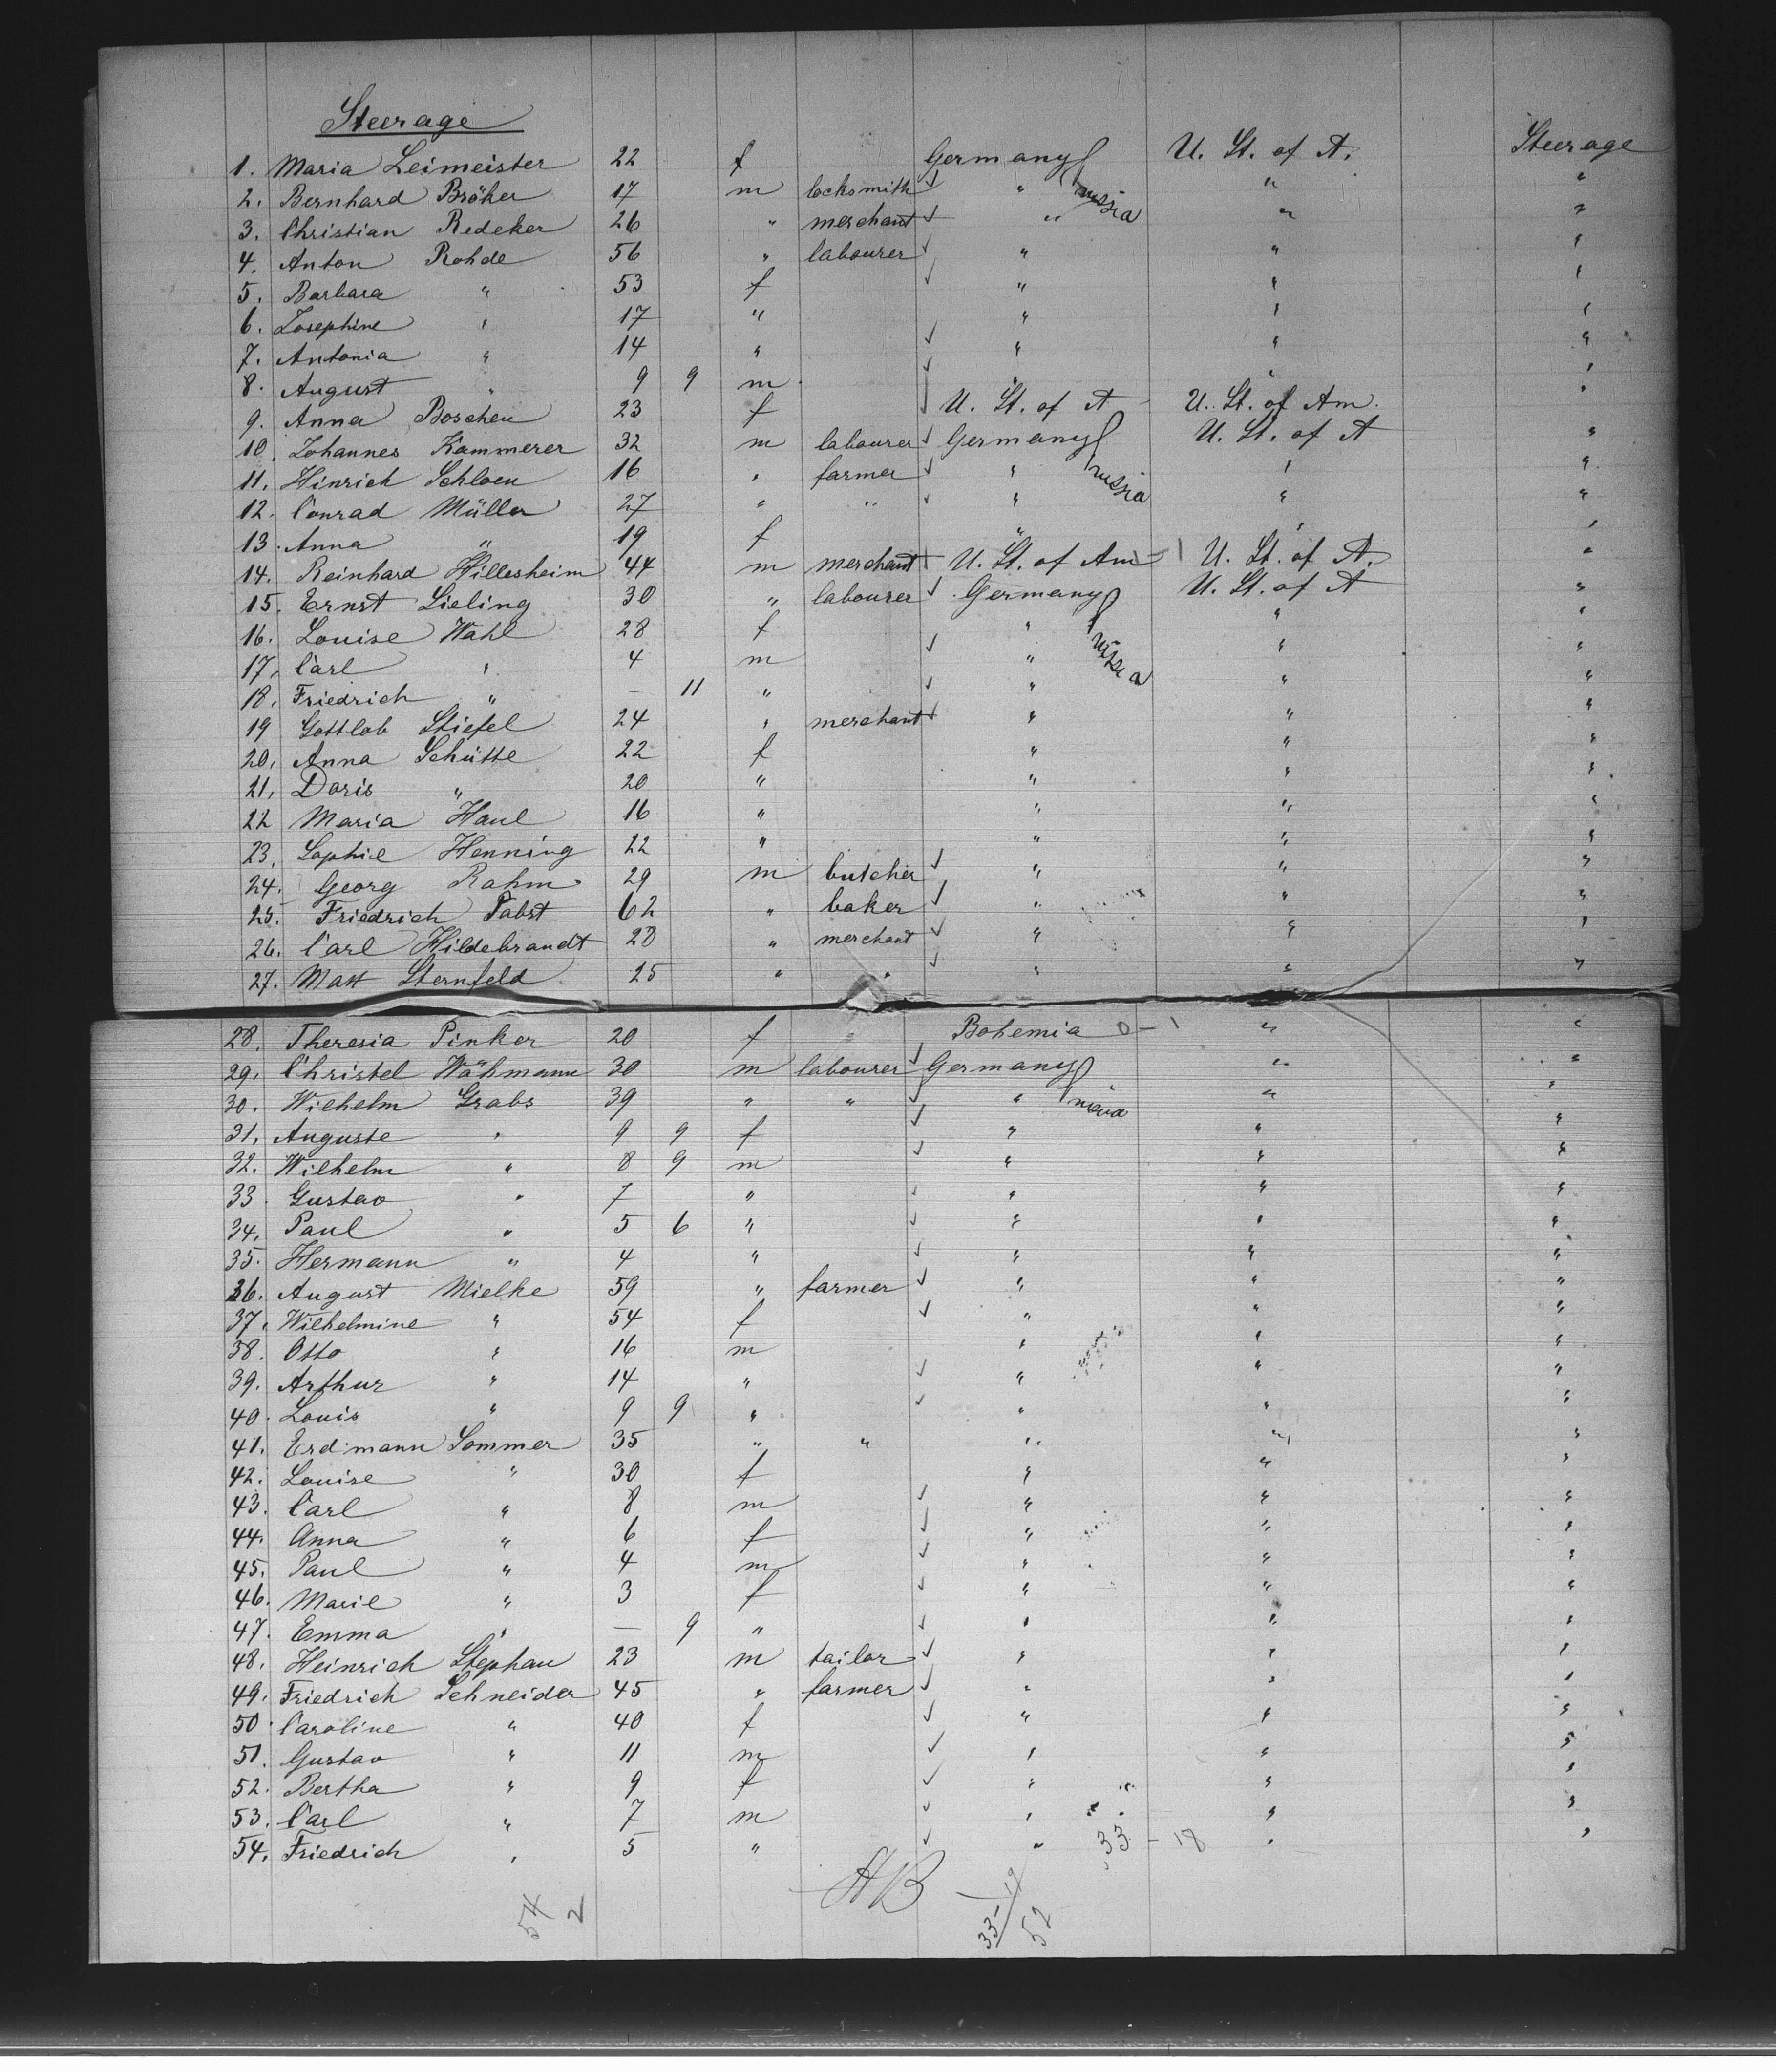 Steerage
1. Maria Leimeister 22 f Germany U. St. of A. Steerage
2. Bernhard Bröker 17 m locksmith " " "
3. Christian Redeker 26 " merchant " " "
4. Anton Rohde 56 " labourer " " "
5. Barbara " 53 f " " "
6. Josephine " 17 " " " "
7. Antonia " 14 " " " "
8. August " 9 9 m " " "
9. Anna Boschen 23 f U. St. of A U. St. of Am. "
10. Johannes Kammerer 32 m labourer Germany U. St. of A "
11. Hinrich Schloen 16 " farmer " " "
12. Conrad Müller 27 " " " " "
13. Anna " 19 f " " "
14. Reinhard Hillesheim 44 m merchant U. St. of Am - 1 U. St. of A. "
15. Ernst Lieling 30 " labourer Germany U. St. of A "
16. Louise Wahl 28 f " " "
17. Carl " 4 m " " "
18. Friedrich " — 11 " " " "
19 Gottlob Stiefel 24 " merchant " " "
20. Anna Schütte 22 f " " "
21. Doris " 20 " " " "
22 Maria Haul 16 " " " "
23. Sophie Henning 22 " " " "
24. Georg Rahm 29 m butcher " " "
25. Friedrich Pabst 62 " baker " " "
26. Carl Hildebrandt 28 " merchant " " "
27. Max Sternfeld 25 " " " " "
28. Theresia Pinker 20 f Bohemia 0-1 " "
29. Christel Wähmann 30 m labourer Germany " "
30. Wilhelm Grabs 39 " " " " "
31. Auguste " 9 9 f " " "
32. Wilhelm " 8 9 m " " "
33. Gustav " 7 " " " "
34. Paul " 5 6 " " " "
35. Hermann " 4 " " " "
36. August Mielke 59 " farmer " " "
37. Wilhelmine " 54 f " " "
38. Otto " 16 m " " "
39. Arthur " 14 " " " "
40. Louis " 9 9 " " " "
41. Erdmann Sommer 35 " " " " "
42. Louise " 30 f " " "
43. Carl " 8 m " " "
44. Anna " 6 f " " "
45. Paul " 4 m " " "
46. Marie " 3 f " " "
47. Emma " — 9 " " " "
48. Heinrich Stephan 23 m tailor " " "
49. Friedrich Schneider 45 " farmer " " "
50. Caroline " 40 f " " "
51. Gustav " 11 m " " "
52. Bertha " 9 f " " "
53. Carl " 7 m " " "
54. Friedrich " 5 " " 33 - 18 " "
54
2
33-19
52